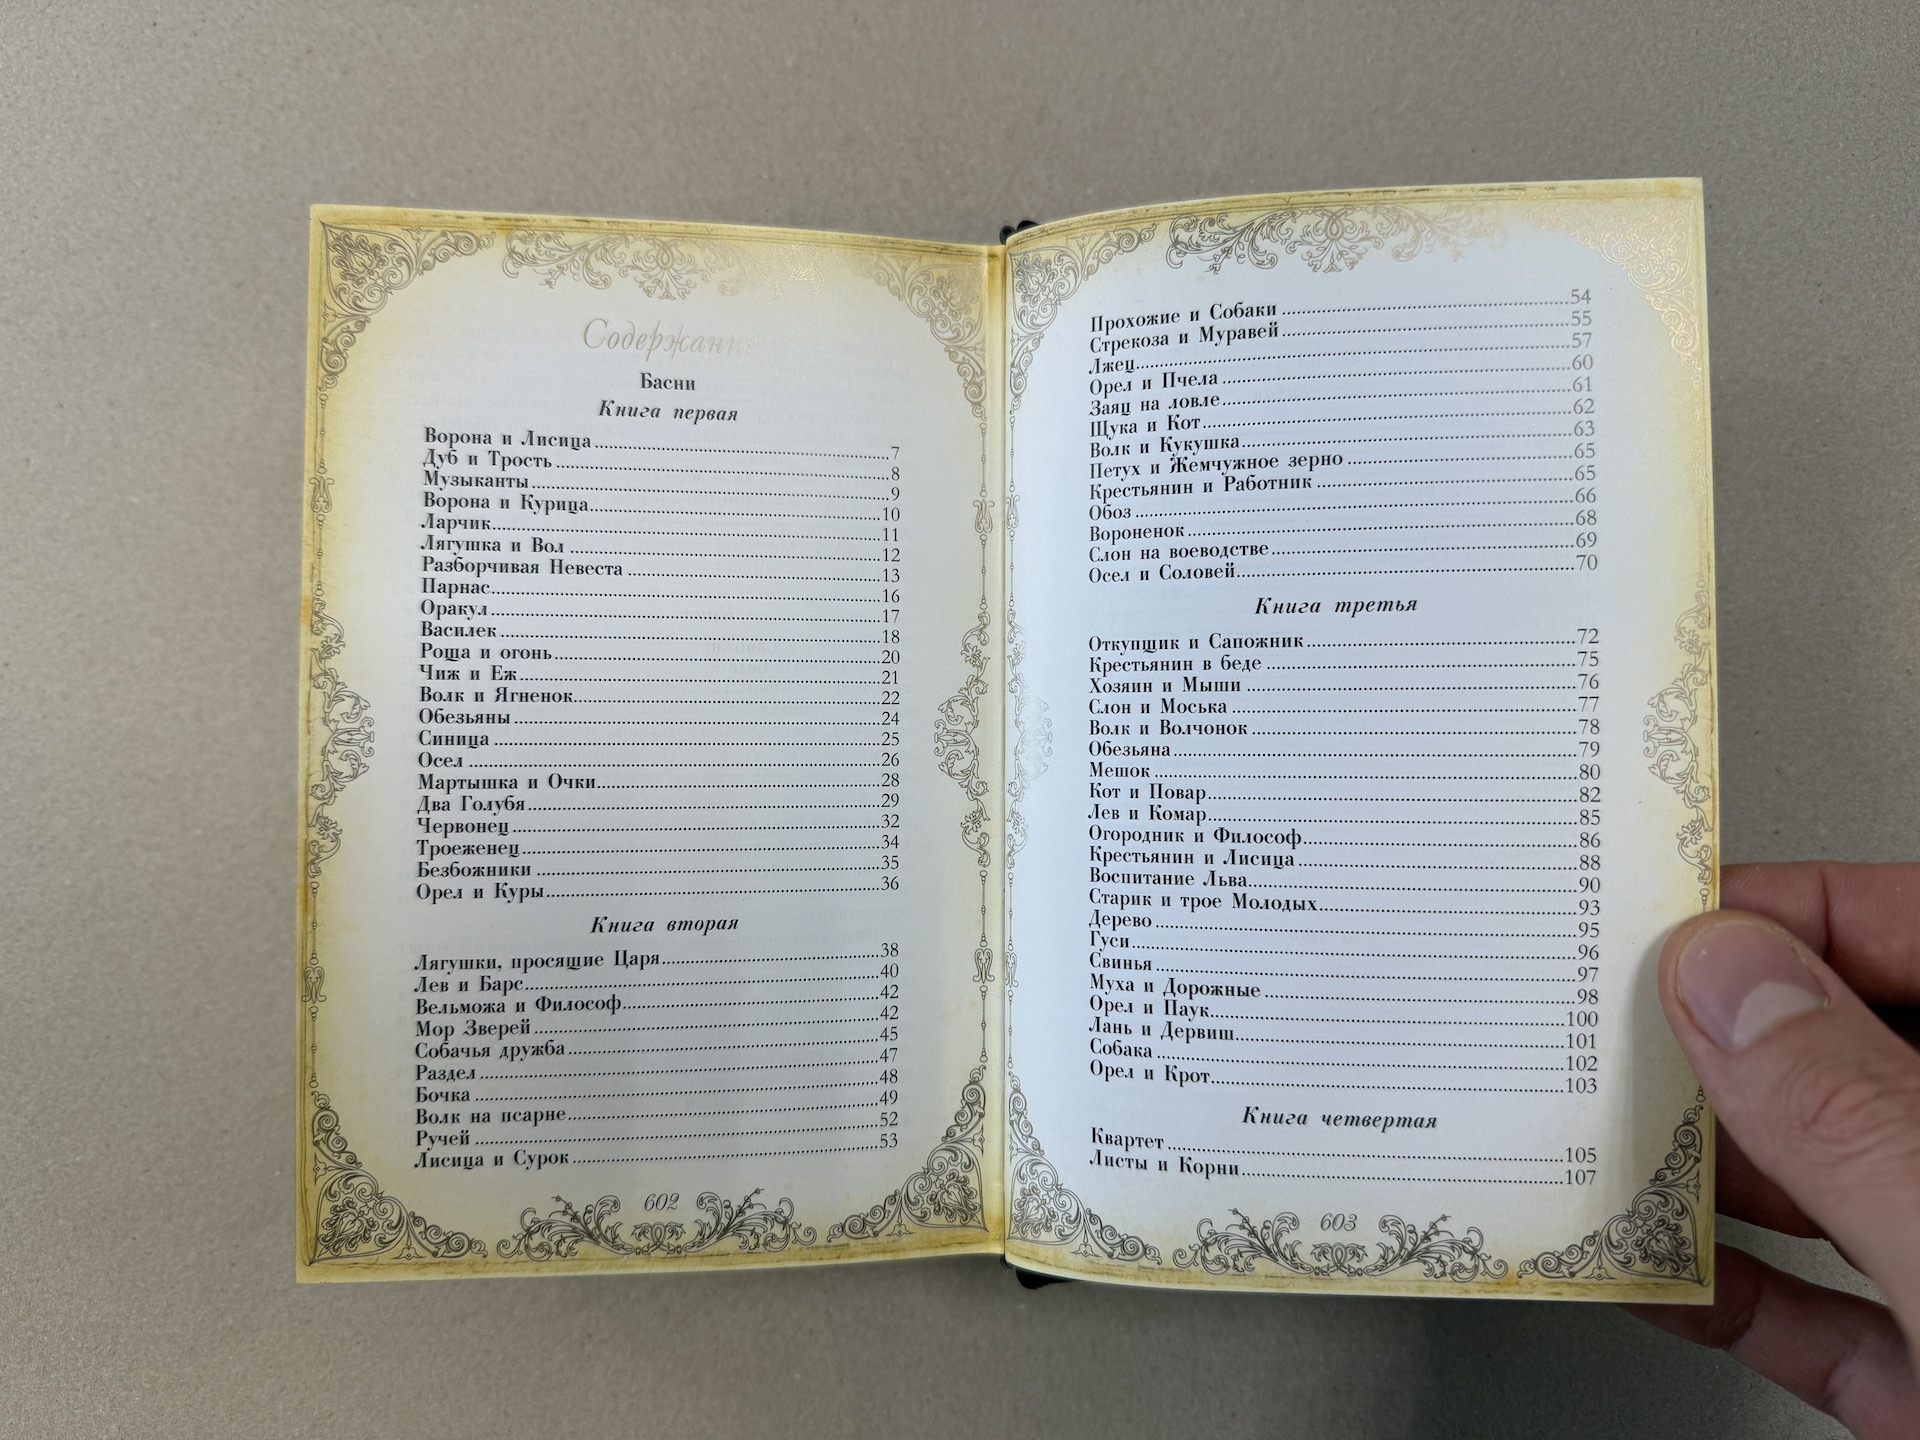 Содержание
Басни
Книга первая
Ворона и Лисица....7
Дуб и Трость....8
Музыканты....9
Ворона и Курица....10
Ларчик....11
Лягушка и Вол....12
Разборчивая Невеста....13
Парнас....16
Оракул....17
Василек....18
Роща и огонь....20
Чиж и Еж....21
Волк и Ягненок....22
Обезьяны....24
Синица....25
Осел....26
Мартышка и Очки....28
Два Голубя....29
Червонец....32
Троеженец....34
Безбожники....35
Орел и Куры....36
Книга вторая
Лягушки, просящие Царя....38
Лев и Барс....40
Вельможа и Философ....42
Мор Зверей....42
Собачья дружба....45
Раздел....47
Бочка....48
Волк на псарне....49
Ручей....52
Лисица и Сурок....53
602
Прохожие и Собаки....54
Стрекоза и Муравей....55
Лжец....57
Орел и Пчела....60
Заяц на ловле....61
Щука и Кот....62
Волк и Кукушка....63
Петух и Жемчужное зерно....65
Крестьянин и Работник....65
Обоз....66
Вороненок....68
Слон на воеводстве....69
Осел и Соловей....70
Книга третья
Откупщик и Сапожник....72
Крестьянин в беде....75
Хозяин и Мыши....76
Слон и Моська....77
Волк и Волчонок....78
Обезьяна....79
Мешок....80
Кот и Повар....82
Лев и Комар....85
Огородник и Философ....86
Крестьянин и Лисица....88
Воспитание Льва....90
Старик и трое Молодых....93
Дерево....95
Гуси....96
Свинья....97
Муха и Дорожные....98
Орел и Паук....100
Лань и Дервиш....101
Собака....102
Орел и Крот....103
Книга четвертая
Квартет....105
Листы и Корни....107
603